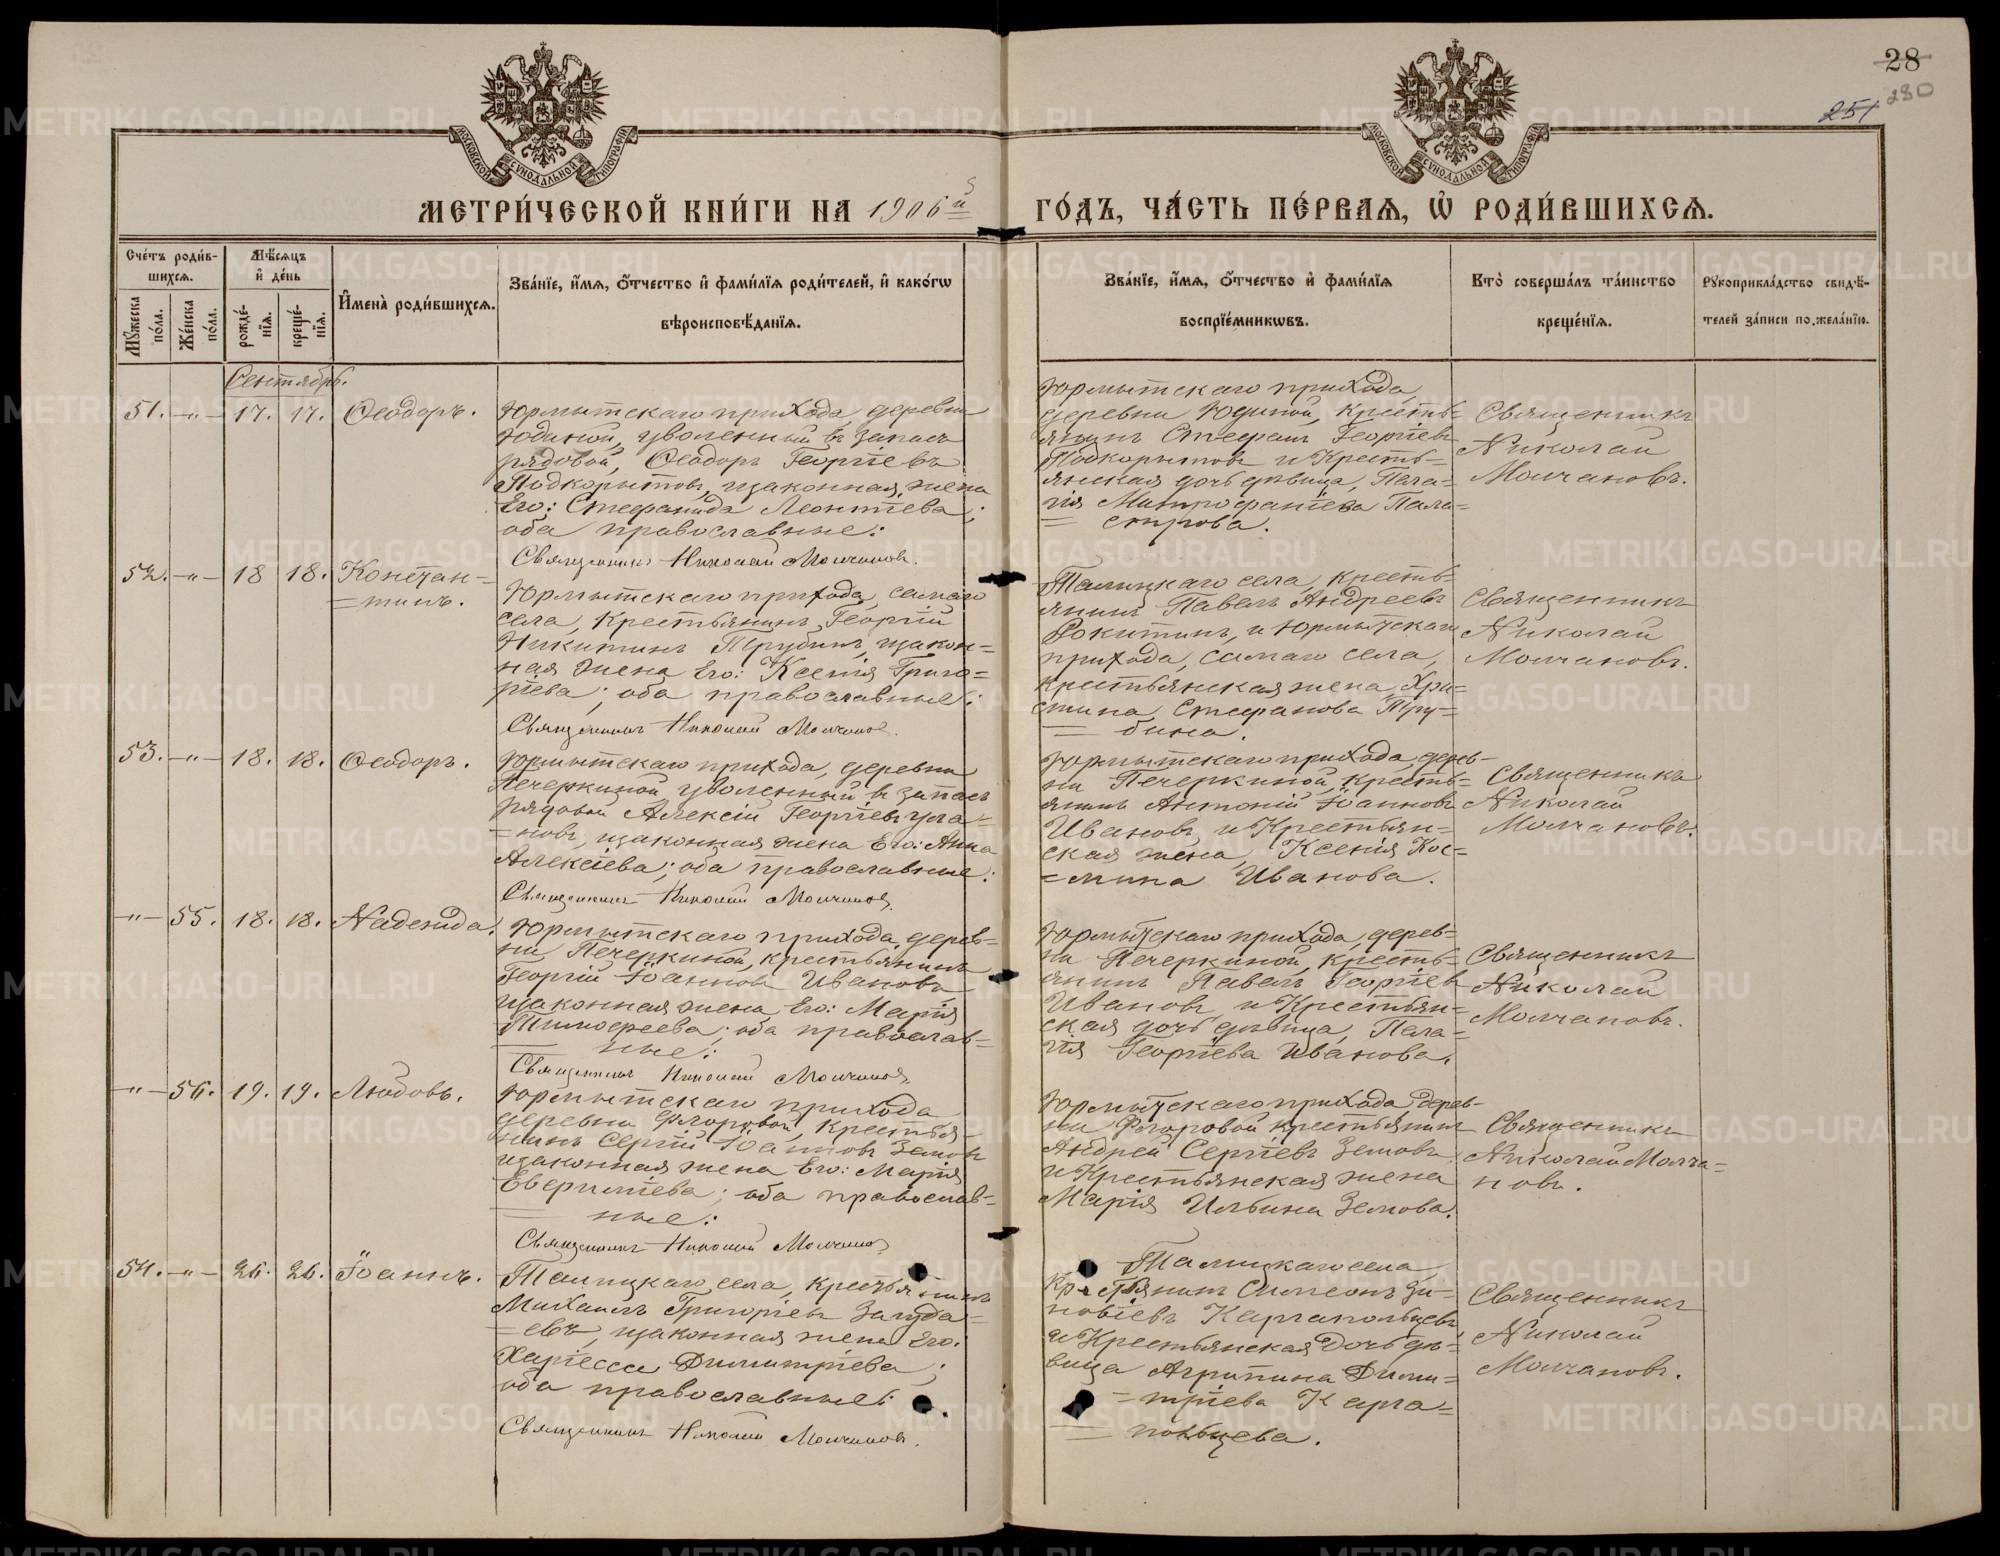 28
280
251
МОСКОВСКОЙ СѴНОДАЛЬНОЙ ТИПОГРАФІИ
МОСКОВСКОЙ СѴНОДАЛЬНОЙ ТИПОГРАФІИ
МЕТРИ́ЧЕСКОЙ КНИ́ГИ НА 1906й
ГО́ДЪ, ЧА́СТЬ ПЕ́РВАЯ, Ѡ РОДИ́ВШИХСЯ.
Сче́тъ роди́в-
шихся.
Мꙋжеска по́ла.
Же́нска по́ла.
Мѣ́сяцъ
и҆ де́нь
рожде́-
нїя.
креще́-
нїя.
И҆мена̀ роди́вшихся.
Зва́нїе, и҆́мя, ѻ҆́тчество и҆ фами́лїя роди́телей, и҆ како́гѡ
вѣроисповѣ́данїя.
Зва́нїе, и҆́мя, ѻ҆́тчество и҆ фами́лїя
воспрїе́мникѡвъ.
Кто̀ соверша́лъ та́инство
креще́нїя.
Рꙋкоприкла́дство свидѣ́-
телей за́писи по жела́нїю.
Сентябрь.
51. -"- 17. 17. Ѳеодоръ.
Юрмытскаго прихода, деревни
Юдиной, уволенный въ запасъ
рядовой, Ѳеодоръ Георгіевъ
Подкорытовъ, и законная жена
Его: Стефанида Леонтіева;
оба православные:
Священникъ Николай Молчановъ.
Юрмытскаго прихода,
деревни Юдиной, кресть-
янинъ Стефанъ Георгіевъ
Подкорытовъ и Кресть-
янская дочь дѣвица, Пела-
гія Митрофаніева Пала-
= строва.
Священникъ
Николай
Молчановъ.
52. -"- 18 18. Констан-
=тинъ.
Юрмытскаго прихода, самаго
села, Крестьянинъ, Георгій
Никитинъ Трубинъ, и закон-
ная жена Его: Ксенія Григо-
ріева; оба православные:
Священникъ Николай Молчановъ.
Талицкаго села, кресть-
янинъ Павелъ Андреевъ
Рокитинъ, и Юрмытскаго
прихода, самаго села,
крестьянская жена, Хри-
стина Стефанова Тру-
= бина.
Священникъ
Николай
Молчановъ.
53. -"- 18. 18. Ѳеодоръ.
Юрмытскаго прихода, деревни
Печеркиной уволенный въ запасъ
рядовой Алексій Георгіевъ Ула-
=новъ, и законная жена Его: Анна
Алексіева; оба православные:
Священникъ Николай Молчановъ.
Юрмытскаго прихода, дерев-
ни Печеркиной, кресть-
янинъ Антоній Іоанновъ
Ивановъ, и Крестьян-
ская жена, Ксенія Кос-
=мина Иванова.
Священникъ
Николай
Молчановъ.
-"- 55. 18. 18. Надежда.
Юрмытскаго прихода, дерев-
ни Печеркиной, крестьянинъ
Георгій Іоанновъ Ивановъ
и законная жена Его: Марія
Тимоѳеева; оба православ-
ные:
Священникъ Николай Молчановъ.
Юрмытскаго прихода, дерев-
ни Печеркиной, кресть-
янинъ Павелъ Георгіевъ
Ивановъ, и Крестьян-
ская дочь дѣвица, Пела-
гія Георгіева Иванова.
Священникъ
Николай
Молчановъ.
-"- 56. 19. 19. Любовь.
Юрмытскаго прихода
деревни Флоровой, крестья-
нинъ Сергій Іоанновъ Земовъ
и законная жена Его: Марія
Еверитіева; оба православ-
ные:
Священникъ Николай Молчановъ
Юрмытскаго прихода дерев-
ни Флоровой крестьянинъ
Андрей Сергіевъ Земовъ
и Крестьянская жена
Марія Ильина Земова.
Священникъ
Николай Молча-
новъ.
54. -"- 26. 26. Іоаннъ.
Талицкаго села, крестьянинъ
Михаилъ Григоріевъ
=евъ, и законная жена Его:
Харіесса Димитріева;
оба православные:
Священникъ Николай Молчановъ.
Талицкаго села,
Крестьянинъ Симеонъ Зи-
новіевъ Каргапольцевъ
и Крестьянская дочь дѣ-
вица Агрипина Дими-
=тріева Карга-
= польцева.
Священникъ
Николай
Молчановъ.
METRIKI.GASO-URAL.RU